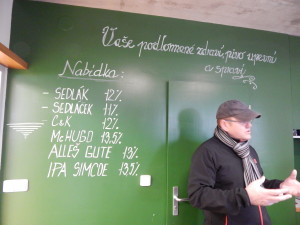 Vaše podlomené zdraví, pivo upevní
a spraví
Nabídka:
- SEDLÁK 12%
- SEDLÁČEK 11%
C&K 12%
McHUGO 13,5%
ALLES GUTE 13%
IPA SIMCOE 13,5%